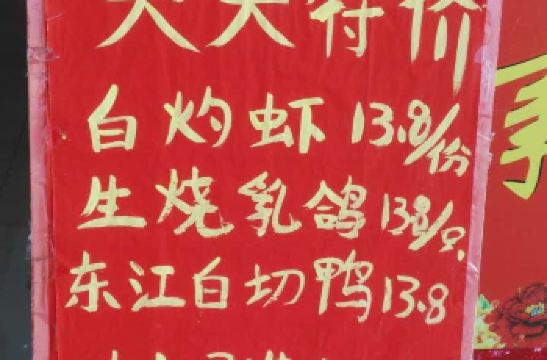 天天特价
白灼虾 13.8/份
生烧乳鸽 138/只
东江白切鸭 13.8